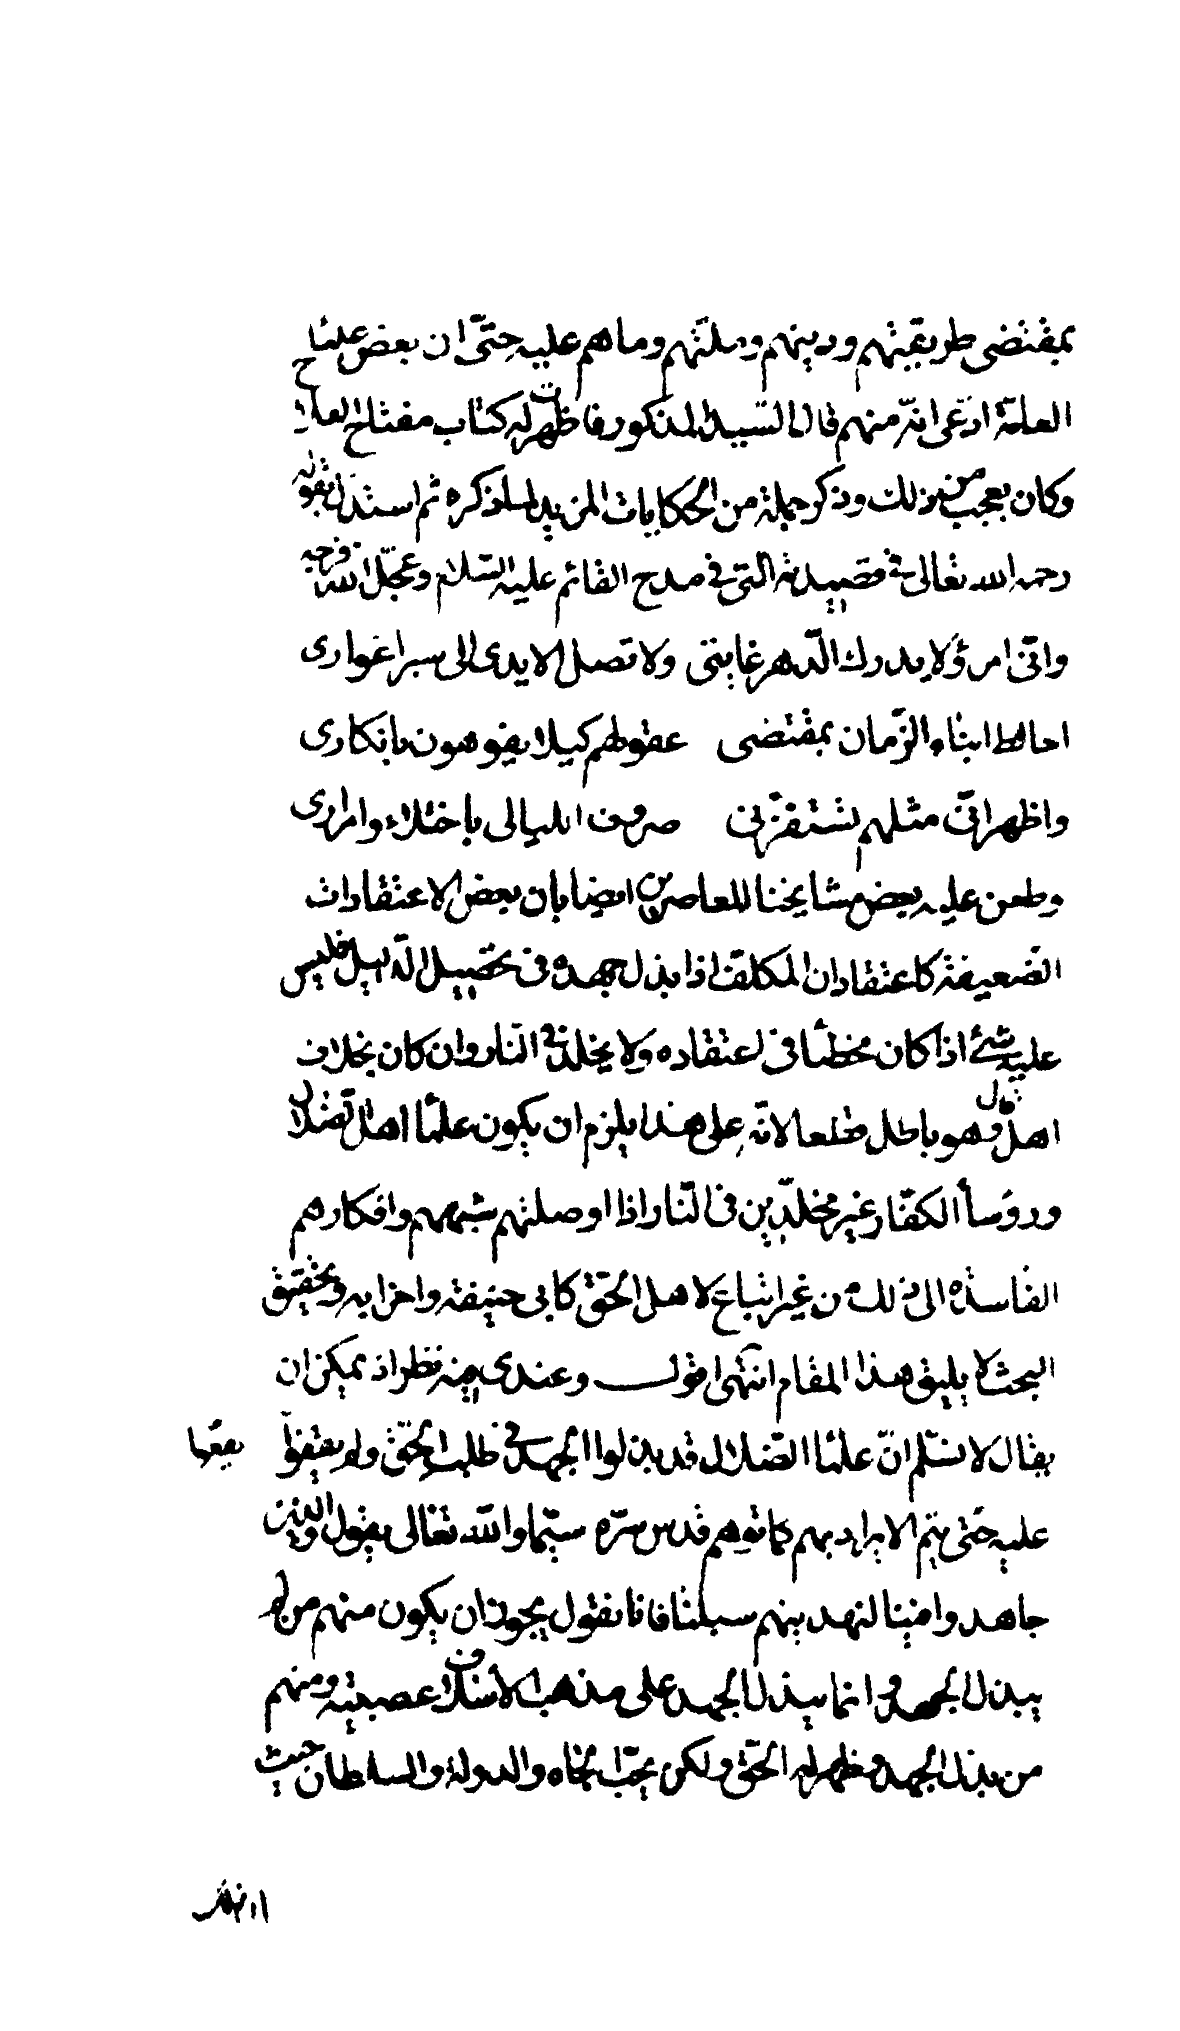 بمقتضى طريقتهم ودينهم وملتهم وما هم عليه حتّى ان بعض علماء
العامّة ادّعى انّه منهم قال السّيد المذكور فاظهرت له كتاب مفتاح الفلاح
وكان معى فعجب من ذلك وذكر جملة من الحكايات المؤيدة لما ذكره ثم استدل بقوله
رحمه الله تعالى في قصيدته التى في مدح القائم عليه السّلام وعجّل الله فرجه
وانّى امرؤ لا يدرك الدّهر غايتى ولا تصل الايدى الى سبر اغوارى
اخالط ابناء الزّمان بمقتضى عقولهم كيلا يفوهون بانكارى
واظهر انّى مثلهم تستفزّنى صروف الليالى باختلاء وامرارى
وطعن عليه بعض مشايخنا المعاصرين ايضا بان بعض الاعتقادات
الضعيفة كاعتقاد ان المكلّف اذا بذل جهده فى تحصيل الدّليل فليس
عليه شئ اذا كان مخطئا فى اعتقاده ولا يخلد فى النار وان كان بخلاف
اهل الحق وهو باطل قطعا لانّه على هذا يلزم ان يكون علماء اهل الضّلال
ورؤسأ الكفّار غير مخلّدين في النّار اذا اوصلتهم شبههم وافكارهم
الفاسدة الى ذلك من غير اتباع لاهل الحقّ كابى حنيفة واحزابه وتحقيق
البحث لا يليق هذا المقام انتهى اقول وعندى فيه نظر اذ يمكن ان
يقال لا نسّلم انّ علماء الضّلال قد بذلوا الجهد في طلب الحقّ ولم يقفوا
عليه حتى يتم الايراد بهم كما توهم قدس سرّه سيّما والله تعالى يقول والذين
جاهدوا فينا لنهدينهم سبلنا فانا نقول يجوز ان يكون منهم من لم
يبذل الجهد وانما يبذل الجهد على مذهب الأسلاف عصبيّة ومنهم
من بذل الجهد وظهر له الحقّ ولكن يحبّ الجاه والدولة والسلطان حيث